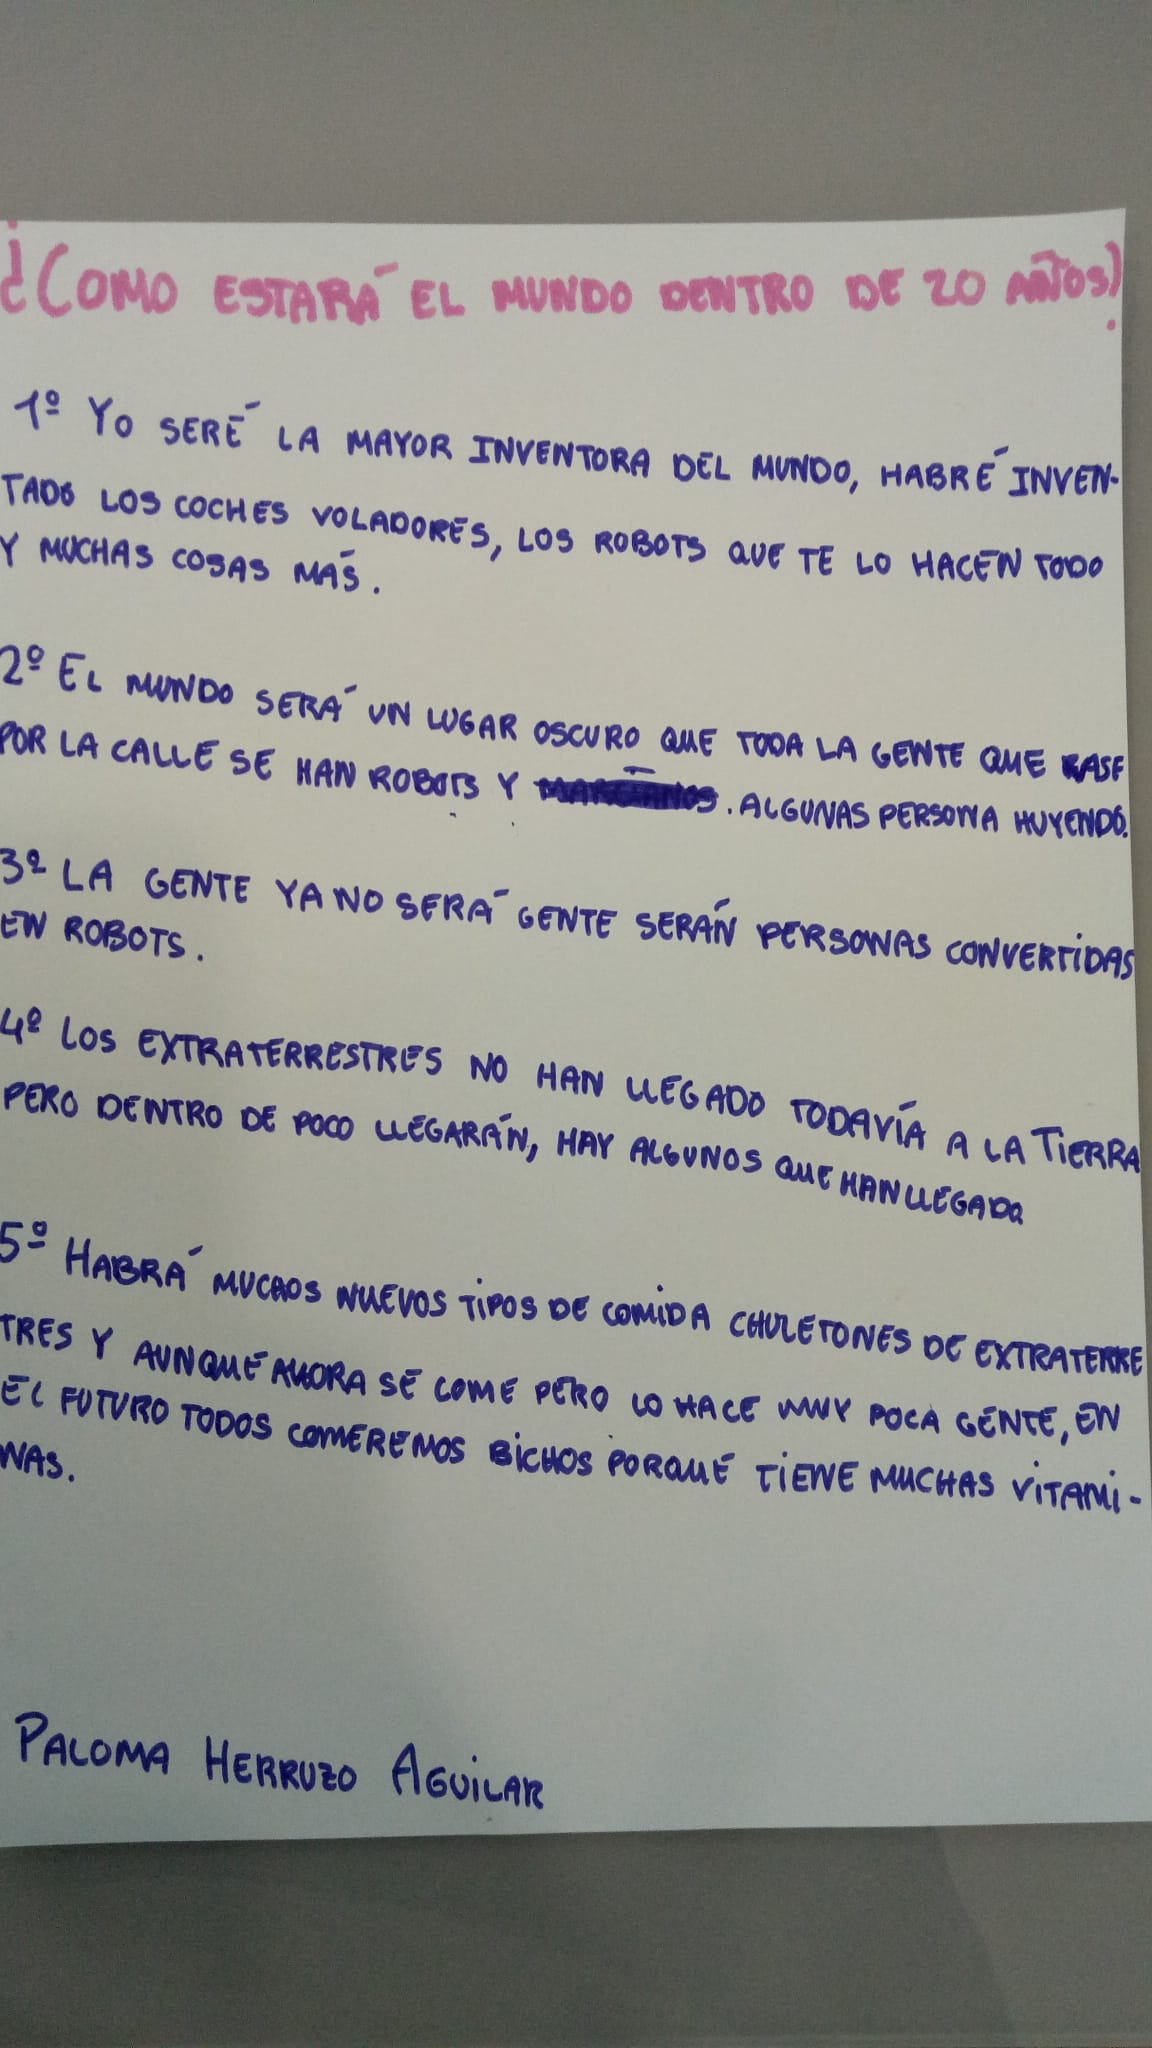 ¿COMO ESTARÁ EL MUNDO DENTRO DE 20 AÑOS?
1º YO SERÉ LA MAYOR INVENTORA DEL MUNDO, HABRÉ INVEN-
TADO LOS COCHES VOLADORES, LOS ROBOTS QUE TE LO HACEN TODO
Y MUCHAS COSAS MÁS.
2º EL MUNDO SERÁ UN LUGAR OSCURO QUE TODA LA GENTE QUE PASE
POR LA CALLE SE HAN ROBOTS Y MARCIANOS. ALGUNAS PERSONA HUYENDO.
3º LA GENTE YA NO SERÁ GENTE SERÁN PERSONAS CONVERTIDAS
EN ROBOTS.
4º LOS EXTRATERRESTRES NO HAN LLEGADO TODAVÍA A LA TIERRA
PERO DENTRO DE POCO LLEGARÁN, HAY ALGUNOS QUE HAN LLEGADO
5º HABRÁ MUCAOS NUEVOS TIPOS DE COMIDA CHULETONES DE EXTRATERRE
TRES Y AUNQUE AHORA SE COME PERO LO HACE MUY POCA GENTE, EN
EL FUTURO TODOS COMEREMOS BICHOS PORQUE TIENE MUCHAS VITAMI-
NAS.
PALOMA HERRUZO AGUILAR